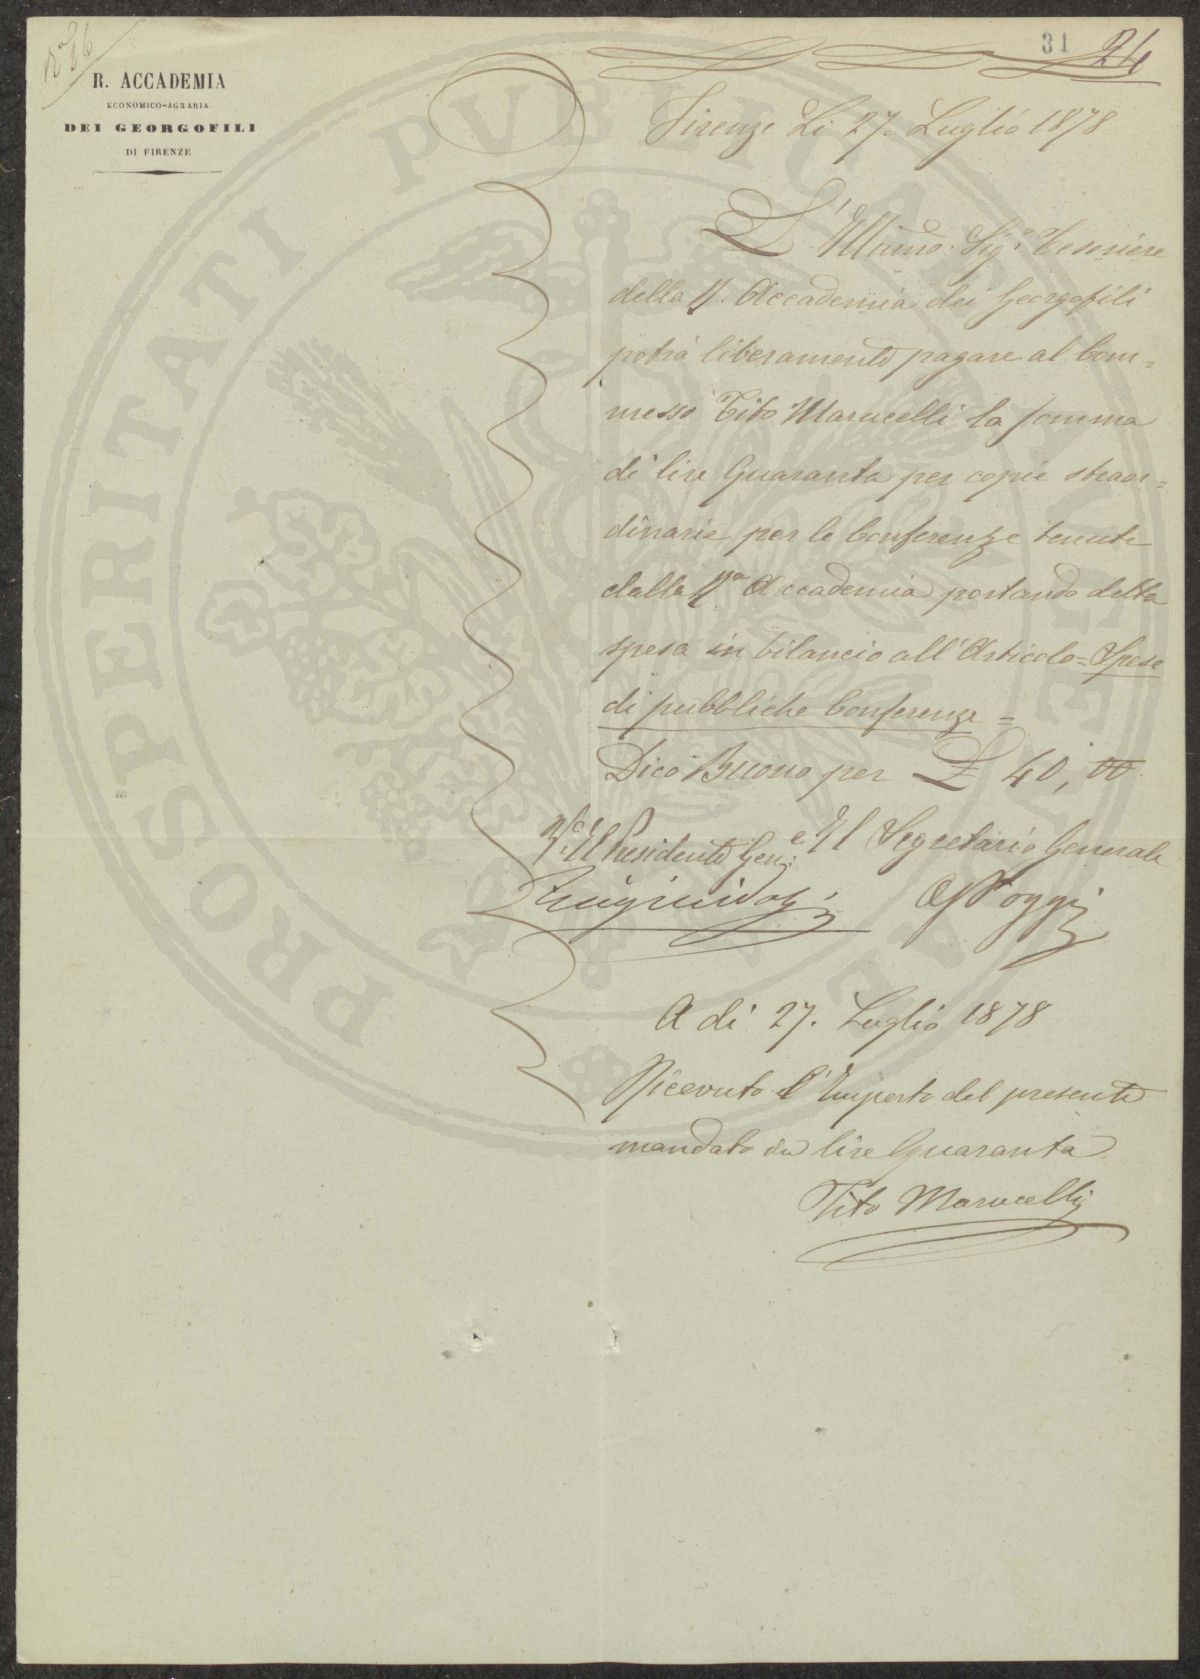 N.º 26
31 24
R. ACCADEMIA
ECONOMICO-AGRARIA
DEI GEORGOFILI
DI FIRENZE
Firenze Li 27. Luglio 1878
L'Illmo: Sig: Tesoriere
della R. Accademia dei Georgofili
potrà liberamente pagare al Com=
messo Tito Marucelli la somma
di lire Quaranta per copie straor=
dinarie per le Conferenze tenute
dalla R.ª Accademia portando detta
spesa in bilancio all'Articolo=Spese
di pubbliche Conferenze=
Dico Buono per £ 40, 00
V.º Il Presidente Gen:e Il Segretario Generale
Luigi Ridolfi
A di 27. Luglio 1878
Ricevuto l'Importo del presente
mandato in lire Quaranta
Tito Marucelli
PROSPERITATI PUBLICAE